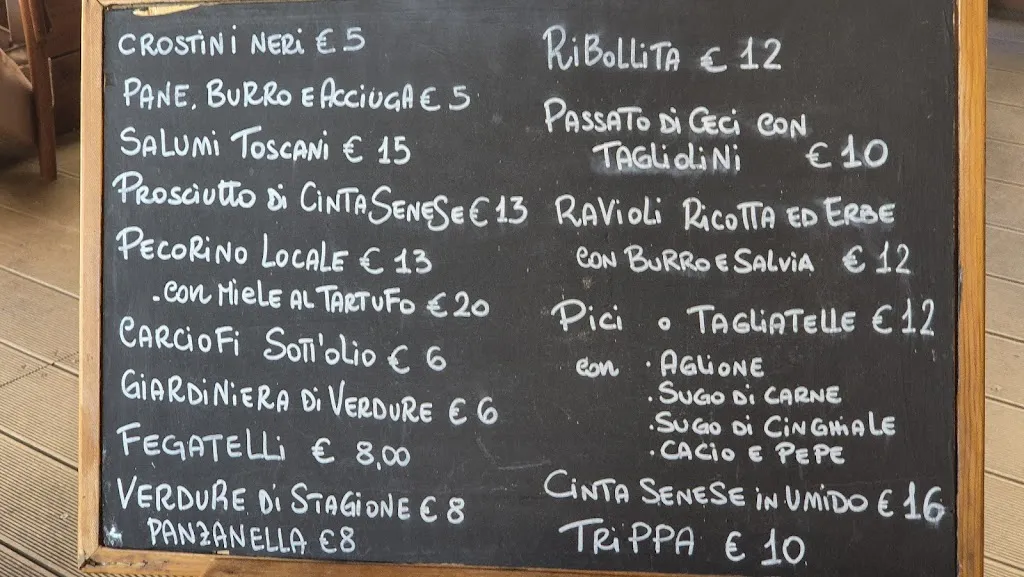 CROSTINI NERI € 5
PANE, BURRO E ACCIUGA € 5
SALUMI TOSCANI € 15
PROSCIUTTO DI CINTA SENESE € 13
PECORINO LOCALE € 13
. CON MIELE AL TARTUFO € 20
CARCIOFI SOTT'OLIO € 6
GIARDINIERA DI VERDURE € 6
FEGATELLI € 8,00
VERDURE DI STAGIONE € 8
PANZANELLA € 8
RIBOLLITA € 12
PASSATO DI CECI CON
TAGLIOLINI € 10
RAVIOLI RICOTTA ED ERBE
CON BURRO E SALVIA € 12
PICI O TAGLIATELLE € 12
CON . AGLIONE
. SUGO DI CARNE
. SUGO DI CINGHIALE
. CACIO E PEPE
CINTA SENESE IN UMIDO € 16
TRIPPA € 10